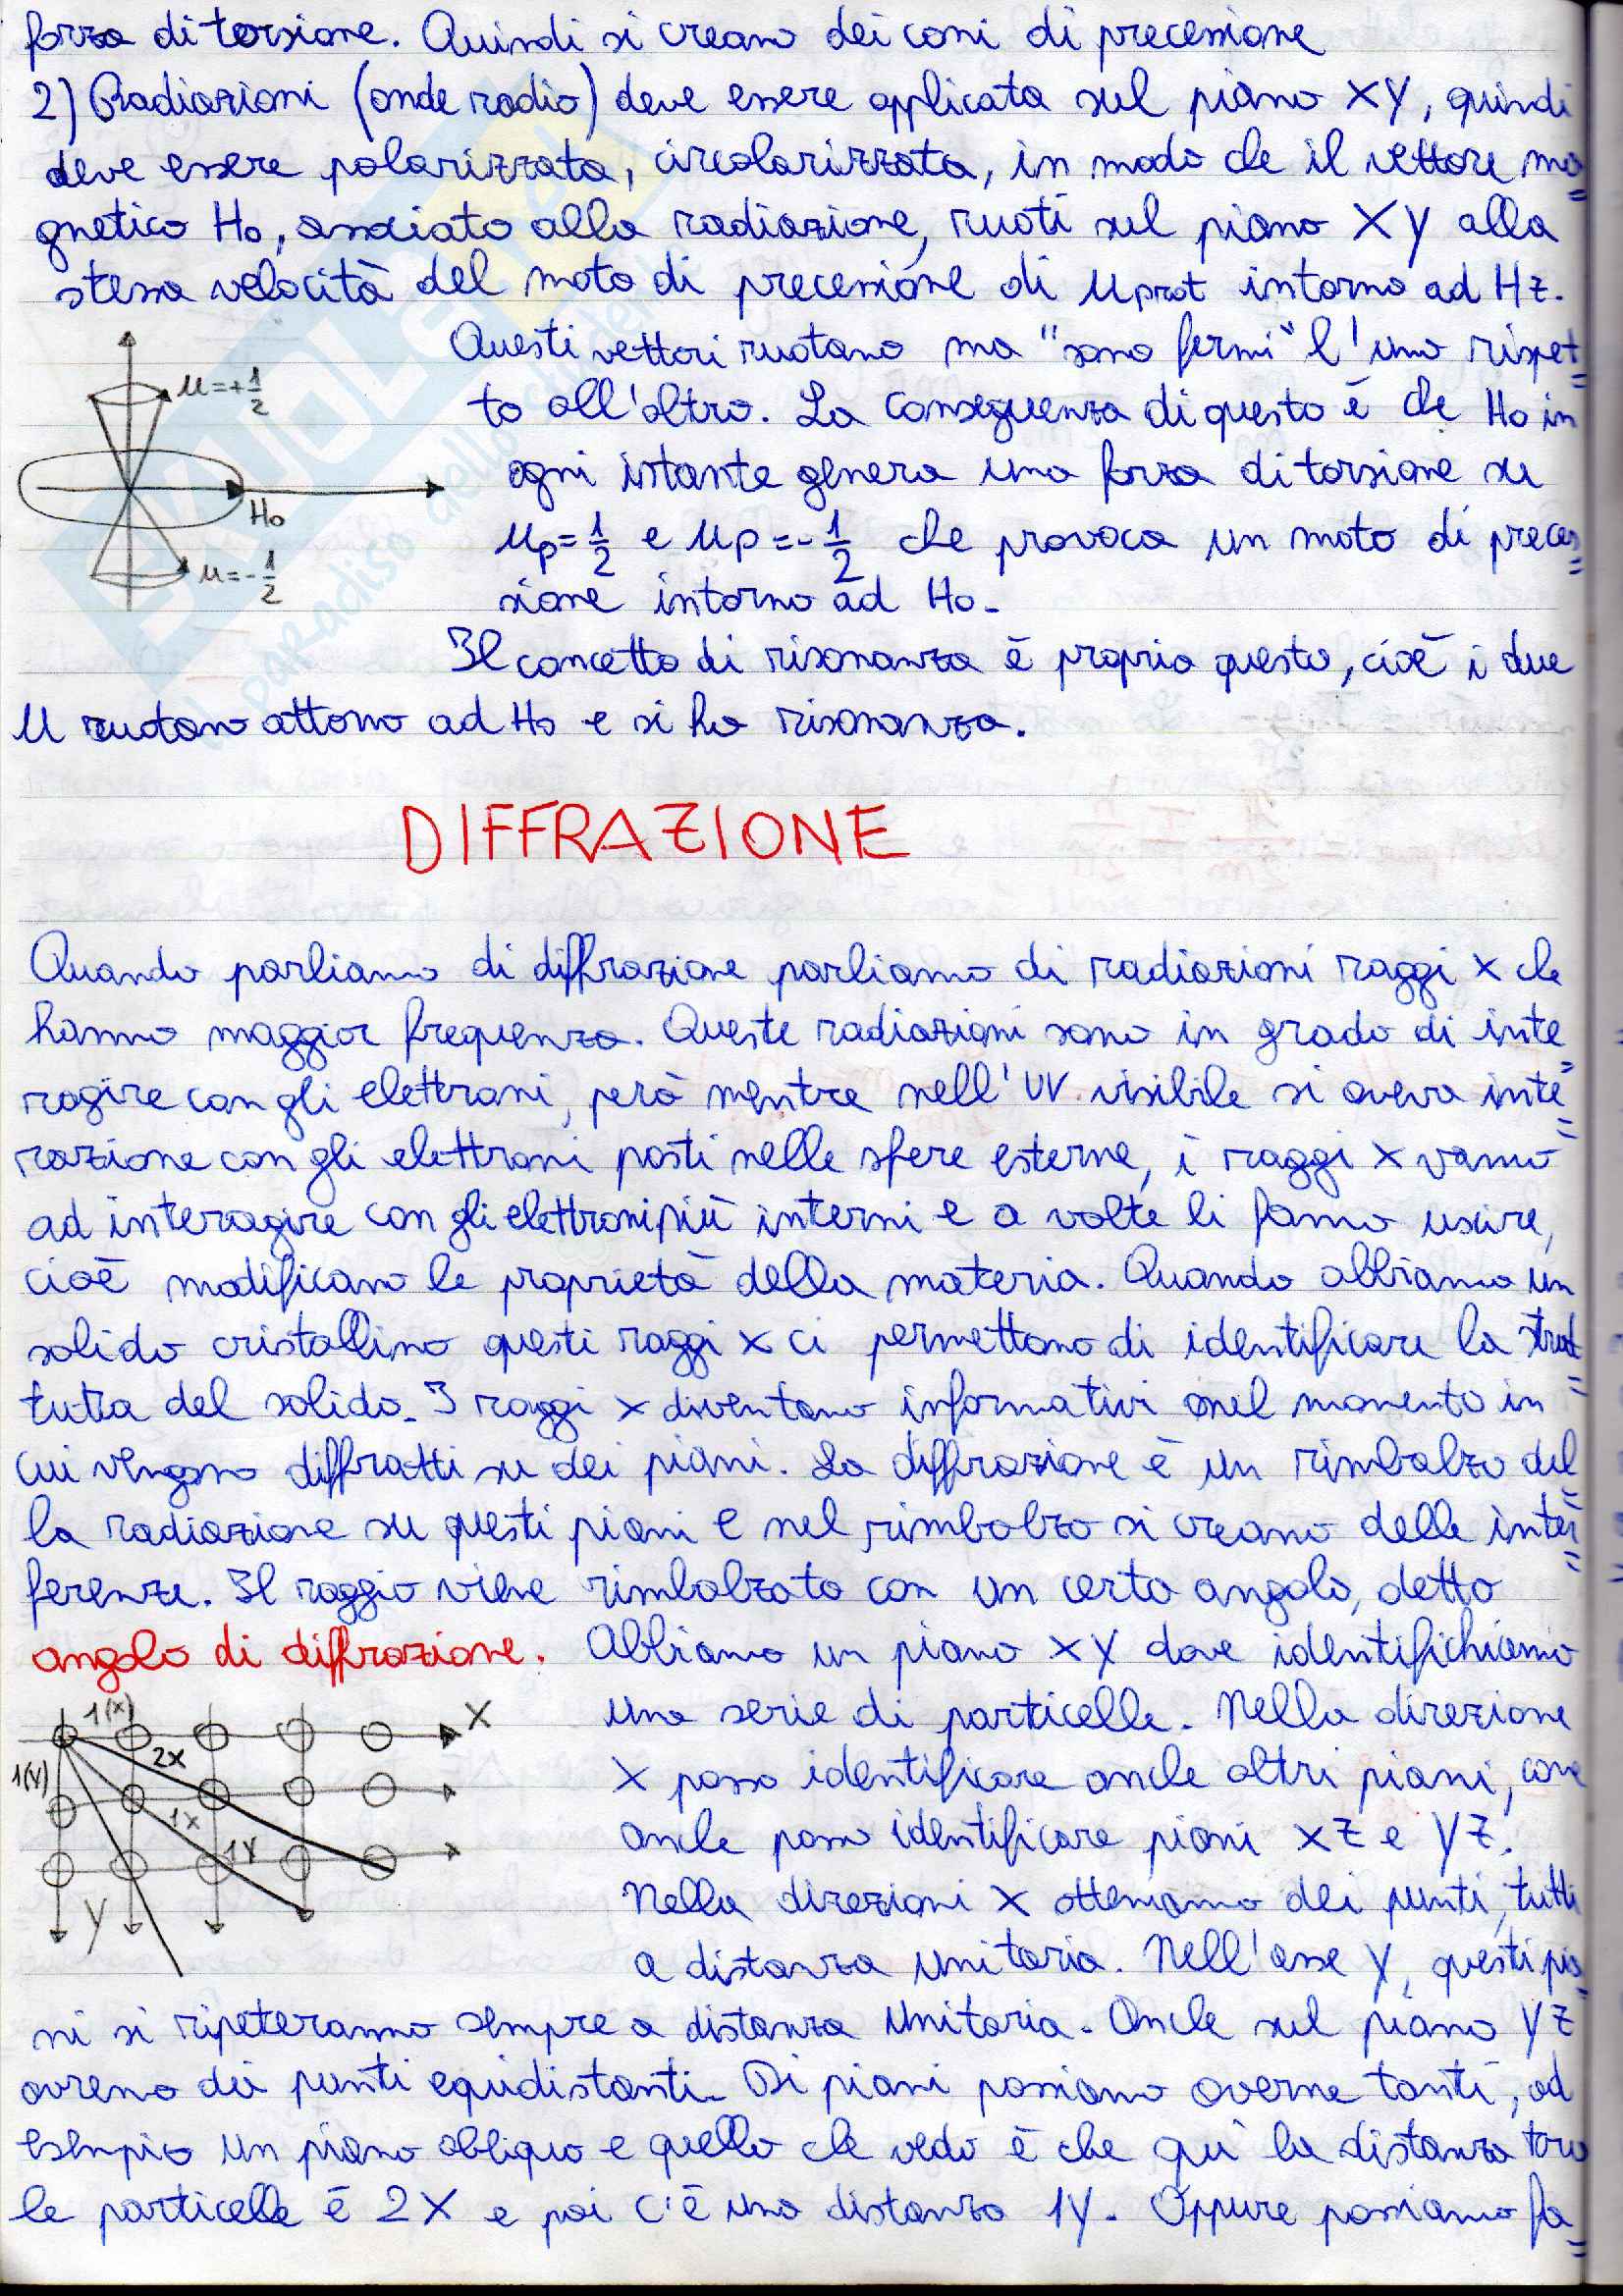 forza di torsione. Quindi si creano dei coni di precessione
2) Radiazioni (onde radio) deve essere applicata sul piano XY, quindi
deve essere polarizzata, circolarizzata, in modo che il vettore ma=
gnetico H₀, associato alla radiazione, ruoti sul piano XY alla
stessa velocità del moto di precessione di μprot intorno ad Hz.
Questi vettori ruotano ma "sono fermi" l'uno rispet=
to all'altro. La conseguenza di questo è che H₀ in
ogni istante genera una forza di torsione su
μp=1/2 e μp=-1/2 che provoca un moto di preces=
sione intorno ad H₀.
Il concetto di risonanza è proprio questo, cioè i due
μ ruotano attorno ad H₀ e si ha risonanza.
μ=+1/2
H₀
μ=-1/2
DIFFRAZIONE
Quando parliamo di diffrazione parliamo di radiazioni raggi x che
hanno maggior frequenza. Queste radiazioni sono in grado di inte=
ragire con gli elettroni, però mentre nell'UV visibile si aveva inte=
razione con gli elettroni posti nelle sfere esterne, i raggi x vanno
ad interagire con gli elettroni più interni e a volte li fanno uscire,
cioè modificano le proprietà della materia. Quando abbiamo un
solido cristallino questi raggi x ci permettono di identificare la strut=
tutra del solido. I raggi x diventano informativi nel momento in
cui vengono diffratti su dei piani. La diffrazione è un rimbalzo del=
la radiazione su questi piani e nel rimbalzo si creano delle inter=
ferenze. Il raggio viene rimbalzato con un certo angolo, detto
angolo di diffrazione. Abbiamo un piano XY dove identifichiamo
una serie di particelle. Nella direzione
X posso identificare anche altri piani, come
anche posso identificare piani XZ e YZ.
Nella direzioni X otteniamo dei punti, tutti
a distanza unitaria. Nell'asse Y, questi pia=
ni si ripeteranno sempre a distanza unitaria. Anche sul piano YZ
avremo dei punti equidistanti. Di piani possiamo averne tanti, ad
esempio un piano obliquo e quello che vedo è che qui la distanza tra
le particelle è 2X e poi c'è una distanza 1Y. Oppure possiamo fa=
1(X)
X
2X
1(Y)
1X
1Y
Y